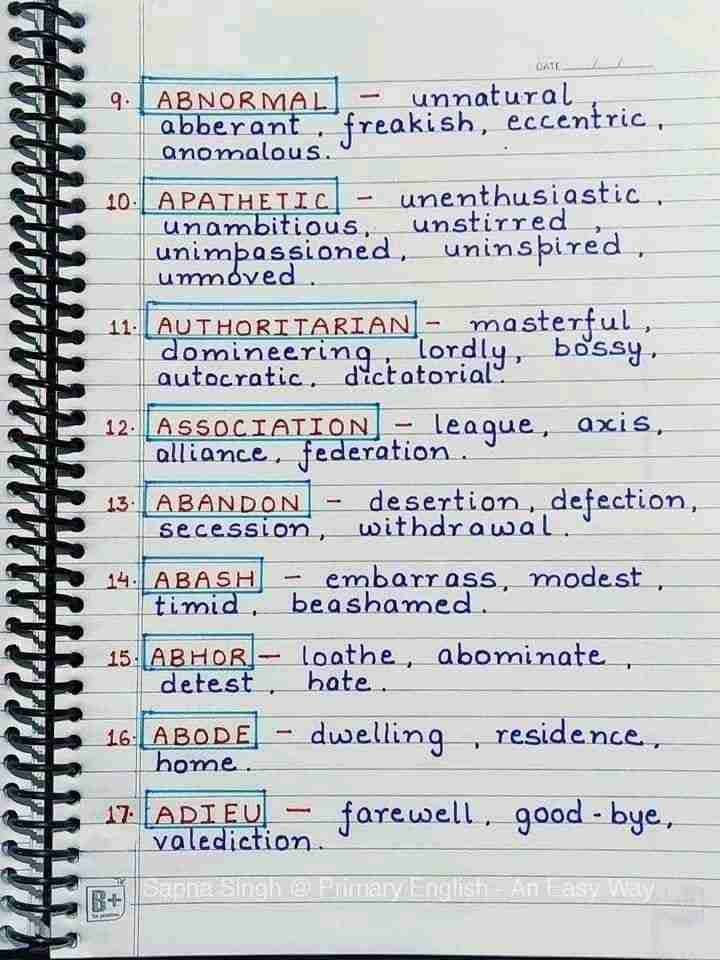 DATE __/__/__
9. ABNORMAL – unnatural,
abberant, freakish, eccentric,
anomalous.
10. APATHETIC – unenthusiastic,
unambitious, unstirred,
unimpassioned, uninspired,
unmoved.
11. AUTHORITARIAN – masterful,
domineering, lordly, bossy,
autocratic, dictatorial.
12. ASSOCIATION – league, axis,
alliance, federation.
13. ABANDON – desertion, defection,
secession, withdrawal.
14. ABASH – embarrass, modest,
timid, beashamed.
15. ABHOR – loathe, abominate,
detest, hate.
16. ABODE – dwelling, residence,
home.
17. ADIEU – farewell, good-bye,
valediction.
B+
Sapna Singh @ Primary English - An Easy Way